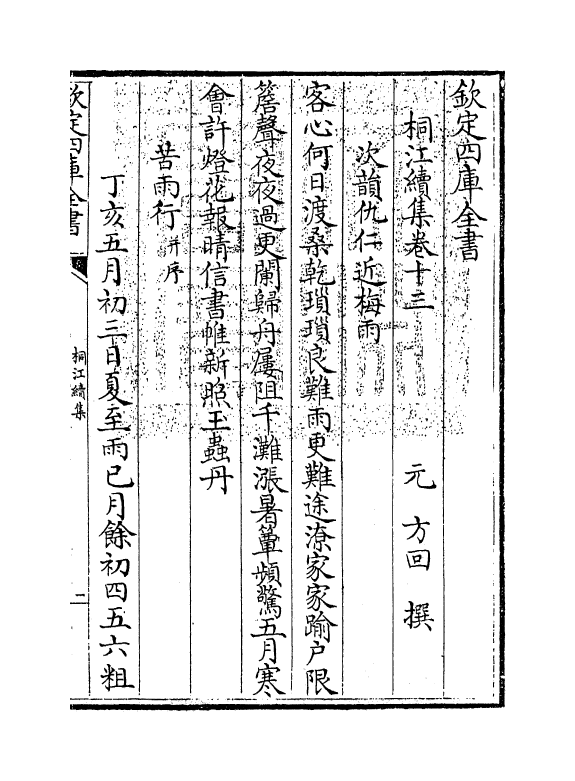 欽定四庫全書
桐江續集卷十三
元 方回 撰
次韻仇仁近梅雨
客心何日渡桑乾瑣瑣良難雨更難途潦家家踰户限
簷聲夜夜過更闌歸舟屢阻千灘漲暑簟頻驚五月寒
會許燈花報晴信書帷新照玉蟲丹
苦雨行并序
丁亥五月初三日夏至雨已月餘初四五六粗
欽定四庫全書
桐江續集
二